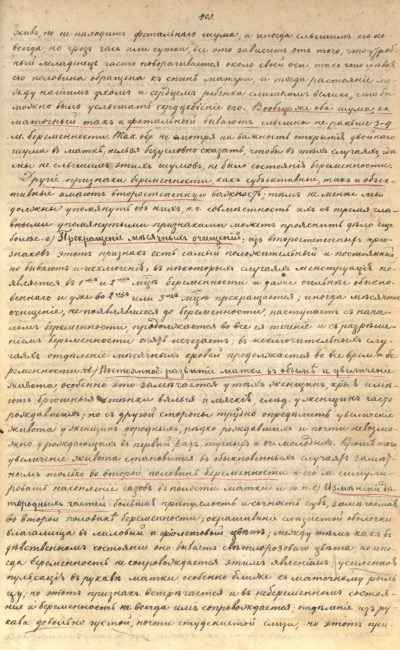 живъ, но не находитъ фетальнаго шума, а иногда слышитъ его не
всегда но чрезъ часъ или сутки, все это зависитъ отъ того, что утроб-
ной младенецъ часто поворачивается около своей оси, такъ что лѣвая
его половина обращена къ спинѣ матери, и тогда растояніе ме-
жду нашимъ ухомъ и сердцемъ ребенка слишкомъ велико, что бы
можно было услышать сердцебіеніе его. Вообще же оба шума какъ
маточный такъ и фетальный бываютъ слышны не раньше 3-4
м. беременности. Так. обр. не смотря на важность открытія двойнаго
шума въ маткѣ, нельзя безусловно сказать, чтобы въ тѣхъ случаяхъ гдѣ
мы не слышимъ этихъ шумовъ, не было состоянія беременности.
Другіе признаки беременности какъ субъективные, такъ и объек-
тивные имѣютъ второстепенную важность; тѣмъ не менѣе мы
должны упомянуть объ нихъ, п.ч. совмѣстность ихъ съ тремя гла-
вными упомянутыми признаками можетъ прояснить дѣло еще
болѣе. Прекращеніе мѣсячныхъ очищеній; изъ второстепенныхъ при-
знаковъ этотъ признакъ есть самый положительный и постоянный,
но бываютъ и исключенія, въ нѣкоторыхъ случаяхъ менструація по-
является въ 1 мѣс. беременности и даже сильнѣе обыкно-
веннаго и уже во 2 или 3 мѣс. прекращается; иногда мѣсячное
очищеніе, не появлявшееся до беременности, наступаетъ съ нача-
ломъ беременности, продолжается во все ея теченіе и съ разрѣше-
ніемъ беременности опять исчезаетъ; въ исключительныхъ слу-
чаяхъ отдѣленіе мѣсячныхъ кровей продолжается во все время бе-
ременности. Постоянное развитіе матки въ объемѣ и увеличеніе
живота; особенно это замѣчается у тѣхъ женщинъ, крыя имѣ-
ютъ брюшныя стѣнки вялыя и мягкія, слѣд. у женщинъ часто
рождавшихъ; но съ другой стороны трудно опредѣлить увеличеніе
живота у женщинъ дородныхъ, рѣдко рождавшихъ и почти невозмо-
жно у рождающихъ въ первый разъ, тучныхъ и оч. молодыхъ. Кромѣ того
увеличеніе живота становится въ обыкновенныхъ случаяхъ замѣт-
нымъ только во второй половинѣ беременности и его м. симули-
ровать накопленіе газовъ въ полости матки и т.п. Измѣненія дѣ-
тородныхъ частей: большая припухлость и сочность губъ, замѣчаемая
во второй половинѣ беременности; окрашиваніе слизистой оболочки
влагалища въ лиловый и фіолетовый цвѣтъ; между тѣмъ какъ въ
дѣвственномъ состояніи оно бываетъ свѣтлорозоваго цвѣта; но ино-
гда беременность не сопровождается этимъ явленіемъ; усиленная
пульсація въ рукавѣ матки особенно ближе къ маточному рыль-
цу; но этотъ признакъ встрѣчается и въ небеременномъ состоя-
ніи и беременность не всегда имъ сопровождается; отдѣленіе изъ ру-
кава довольно густой, почти студенистой слизи, но этотъ при-